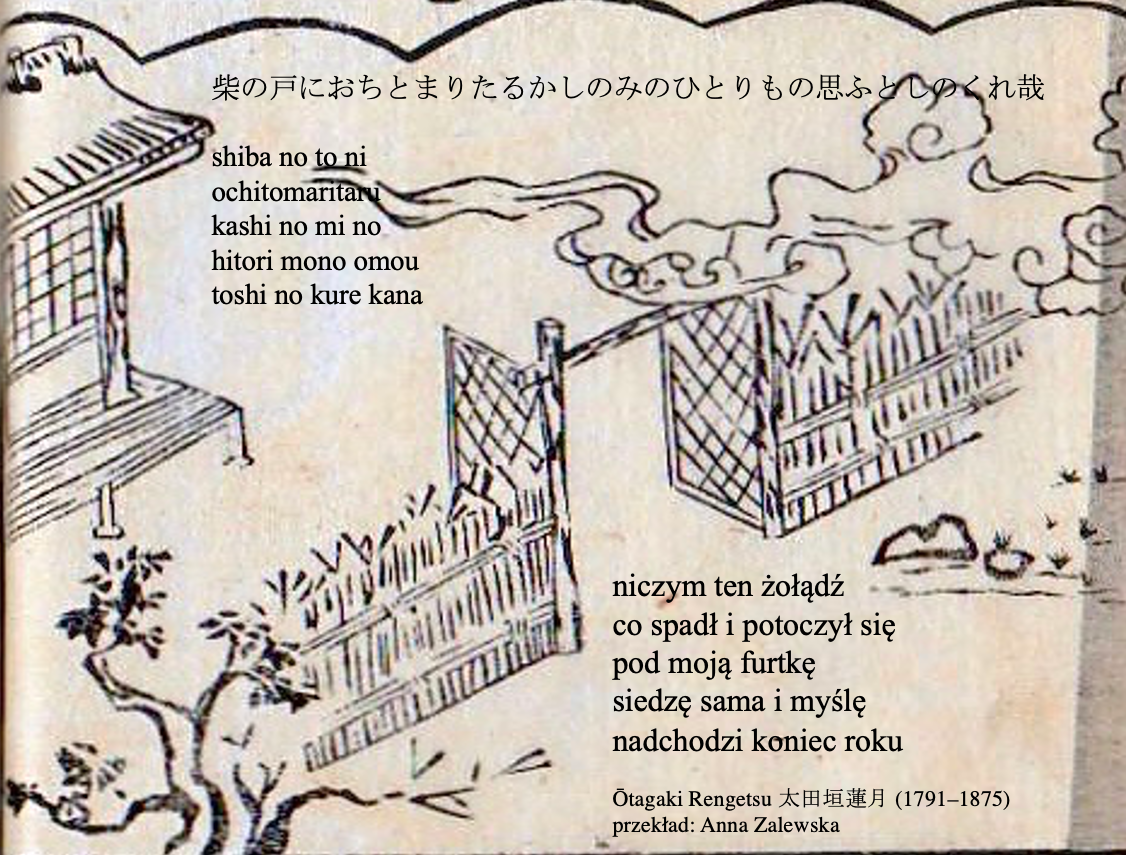 柴の戸におちとまりたるかしのみのひとりもの思ふとしのくれ哉
shiba no to ni
ochitomaritaru
kashi no mi no
hitori mono omou
toshi no kure kana
niczym ten żołądź
co spadł i potoczył się
pod moją furtkę
siedzę sama i myślę
nadchodzi koniec roku
Ōtagaki Rengetsu 太田垣蓮月 (1791–1875)
przekład: Anna Zalewska